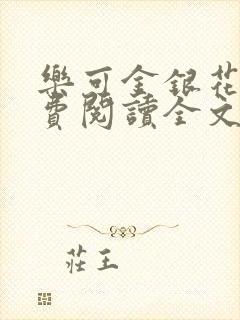 樂可金銀花
費閱讀全文
莊王